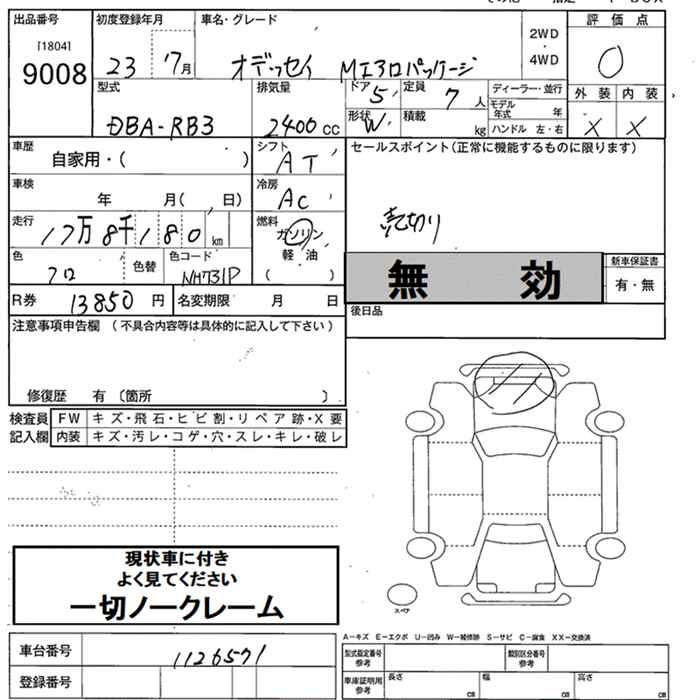 出品番号
[1804]
9008
初度登録年月
23 7月
車名・グレード
オデッセイ Mエアロパッケージ
2WD
・
4WD
評価点
0
型式
DBA-RB3
排気量
2400 CC
ドア 5
定員 7 人
形状 W
積載 kg
ディーラー・並行
モデル年式 年
ハンドル 左・右
外装 内装
X X
車歴
自家用・( )
シフト
AT
セールスポイント(正常に機能するものに限ります)
売切り
車検
年 月( 、 日)
冷房
AC
走行
17万8千180 km
燃料
ガソリン
軽油
( )
色
クロ
色替
色コード
NH731P
無効
新車保証書
有・無
R券 13850 円
名変期限 月 日
後日品
注意事項申告欄 (不具合内容等は具体的に記入して下さい)
修復歴 有 〔箇所 〕
検査員 FW キズ・飛石・ヒビ割・リペア跡・X要
記入欄 内装 キズ・汚レ・コゲ・穴・スレ・キレ・破レ
現状車に付き
よく見てください
一切ノークレーム
スペア
A-キズ E-エクボ U-凹み W-補修跡 S-サビ C-腐食 XX-交換済
車台番号 1126571
登録番号
型式指定番号
参考
類別区分番号
参考
車庫証明用
参考
長さ cm
幅 cm
高さ cm